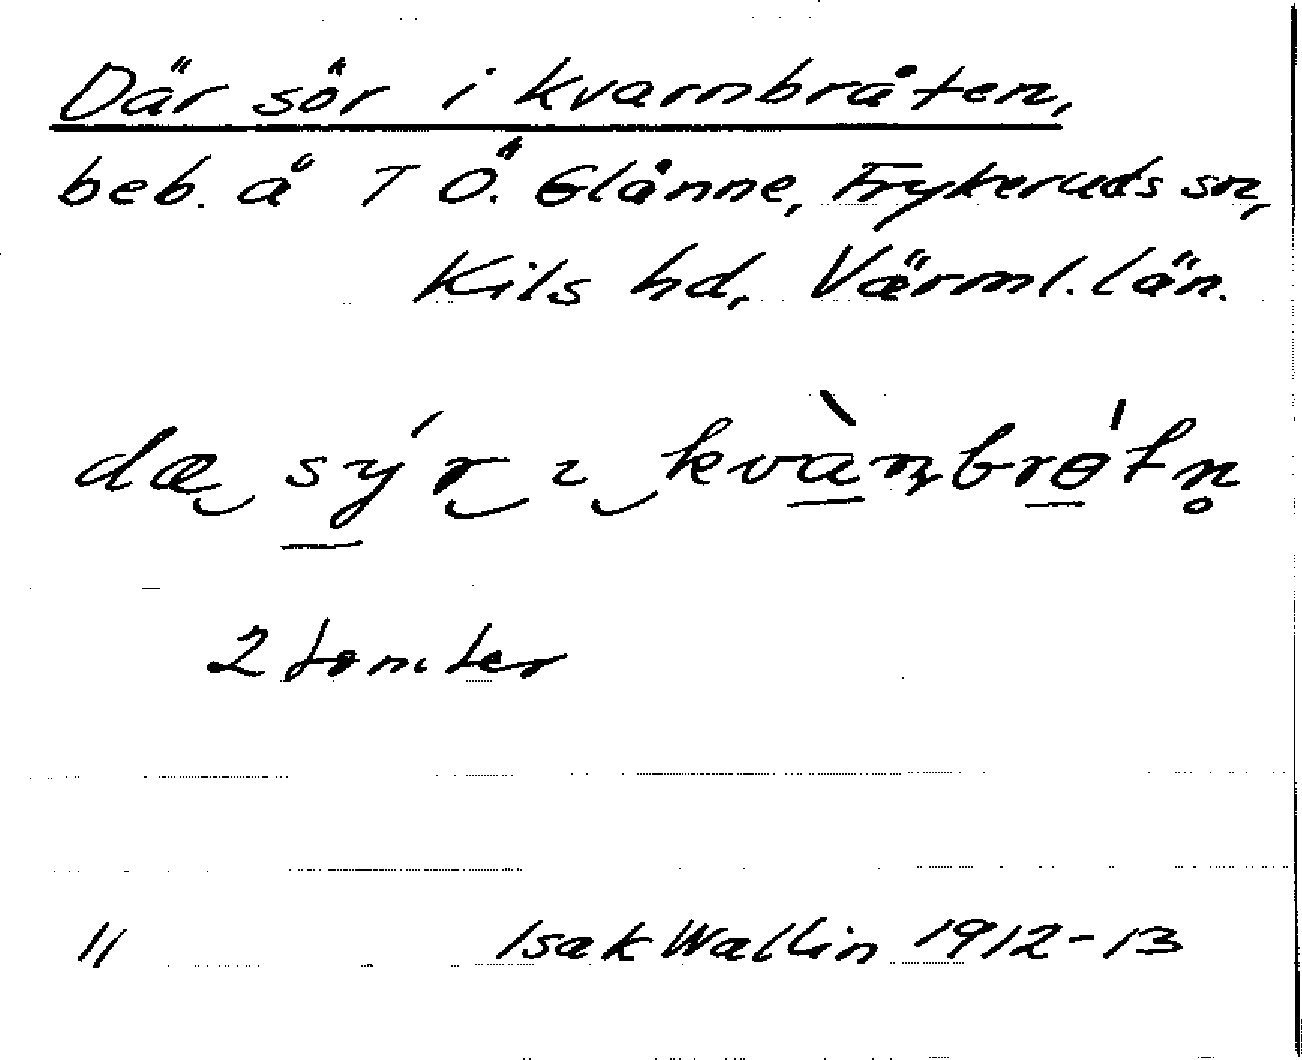 Där sör i kvarnbråten,
beb. å T Ö. Glänne, Frykeruds sn,
Kils hd, Värml. län.
dæ sýr ı kvànbrɵ́tn̥
2 tomter
11 Isak Wallin 1912-13